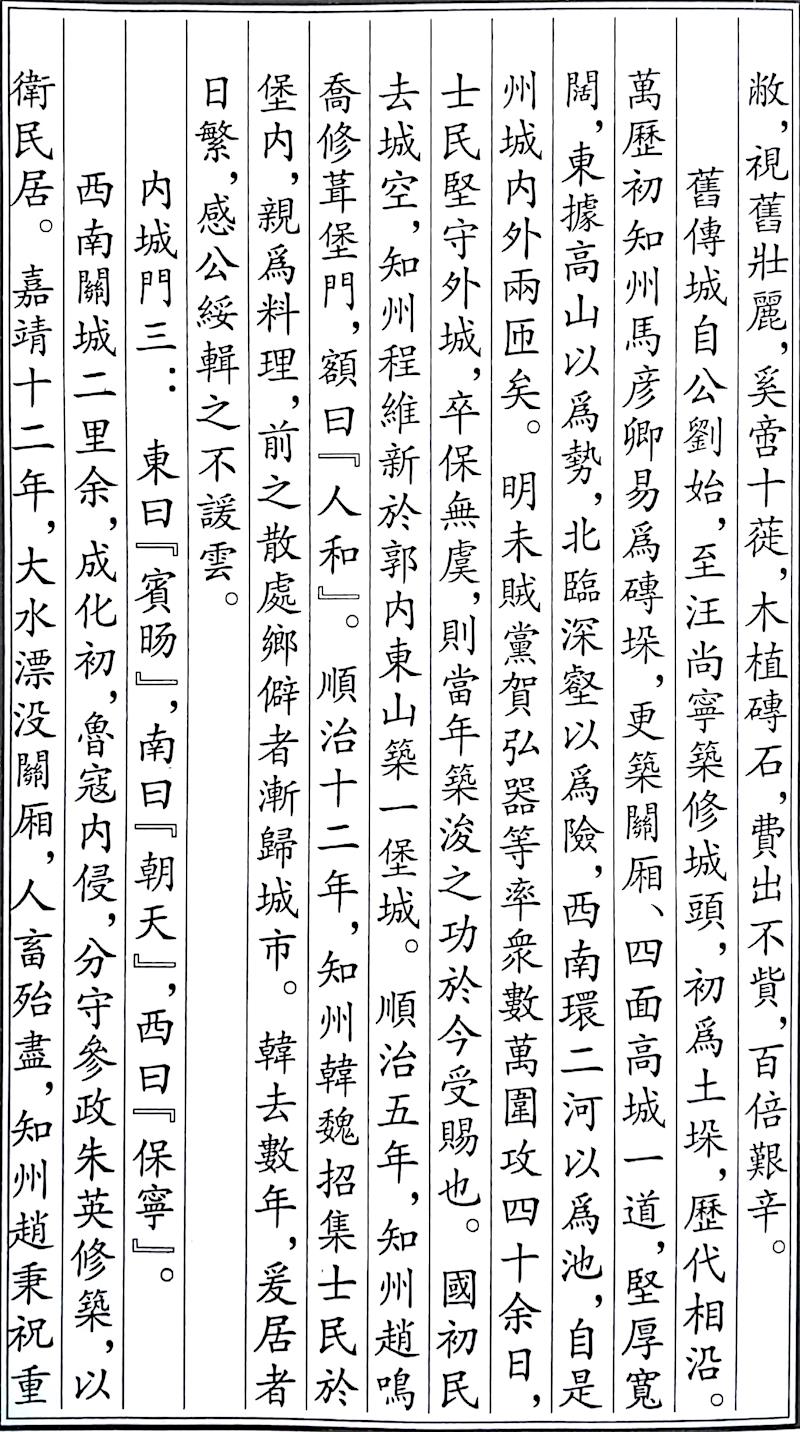 敝，視舊壯麗，奚啻十蓰，木植磚石，費出不貲，百倍艱辛。
舊傳城自公劉始，至汪尚寧築修城頭，初爲土垛，歷代相沿。
萬歷初知州馬彦卿易爲磚垛，更築關厢、四面高城一道，堅厚寬
闊，東據高山以爲勢，北臨深壑以爲險，西南環二河以爲池，自是
州城内外兩匝矣。明末賊黨賀弘器等率衆數萬圍攻四十余日，
士民堅守外城，卒保無虞，則當年築浚之功於今受賜也。國初民
去城空，知州程維新於郭内東山築一堡城。順治五年，知州趙鳴
喬修葺堡門，額曰『人和』。順治十二年，知州韓魏招集士民於
堡内，親爲料理，前之散處鄉僻者漸歸城市。韓去數年，爰居者
日繁，感公綏輯之不諼雲。
内城門三：東曰『賓暘』，南曰『朝天』，西曰『保寧』。
西南關城二里余，成化初，魯寇内侵，分守參政朱英修築，以
衛民居。嘉靖十二年，大水漂没關厢，人畜殆盡，知州趙秉祝重